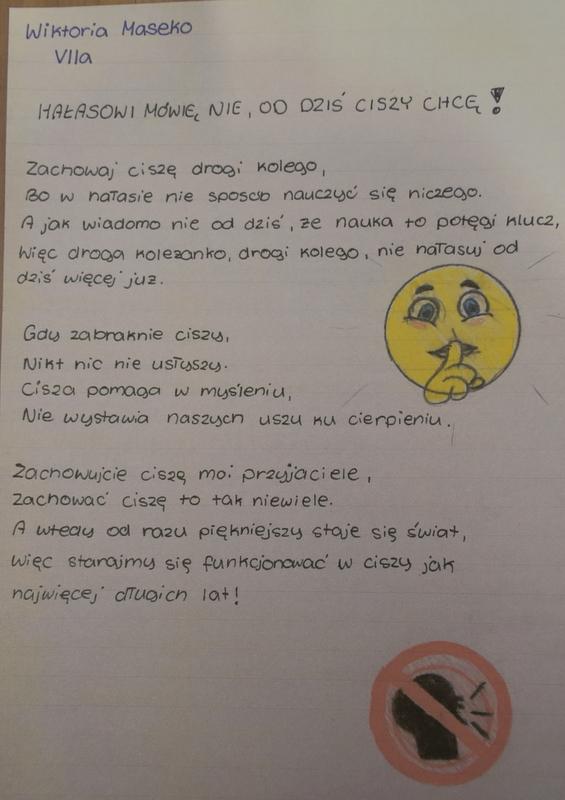 Wiktoria Maseko
VIIa
HAŁASOWI MÓWIĘ NIE, OD DZIŚ CISZY CHCĘ!
Zachowaj ciszę drogi kolego,
Bo w hałasie nie sposób nauczyć się niczego.
A jak wiadomo nie od dziś, że nauka to potęgi klucz,
Więc droga koleżanko, drogi kolego, nie hałasuj od
dziś więcej już.
Gdy zabraknie ciszy,
Nikt nic nie usłyszy.
Cisza pomaga w myśleniu,
Nie wystawia naszych uszu ku cierpieniu.
Zachowujcie ciszę moi przyjaciele,
Zachować ciszę to tak niewiele.
A wtedy od razu piękniejszy staje się świat,
Więc starajmy się funkcjonować w ciszy jak
najwięcej długich lat!